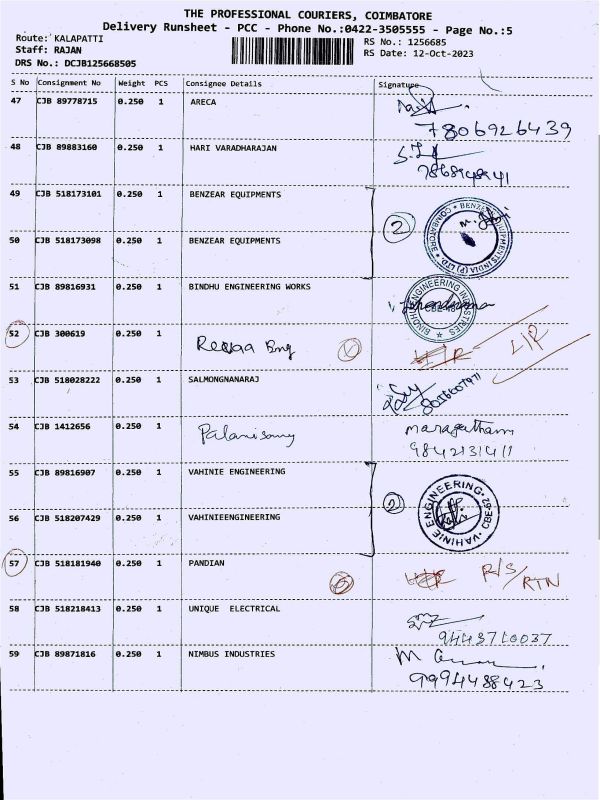 THE PROFESSIONAL COURIERS, COIMBATORE
Delivery Runsheet - PCC - Phone No.:0422-3505555 - Page No.:5
Route: KALAPATTI
RS No.: 1256685
Staff: RAJAN
RS Date: 12-Oct-2023
DRS No.: DCJB125668505
S No Consignment No Weight PCS Consignee Details Signature
47 CJB 89778715 0.250 1 ARECA
7806926439
48 CJB 89883160 0.250 1 HARI VARADHARAJAN
49 CJB 518173101 0.250 1 BENZEAR EQUIPMENTS
2
50 CJB 518173098 0.250 1 BENZEAR EQUIPMENTS
51 CJB 89816931 0.250 1 BINDHU ENGINEERING WORKS
BINDHU ENGINEERING INDUSTRIES
52 CJB 300619 0.250 1
53 CJB 518028222 0.250 1 SALMONGNANARAJ
54 CJB 1412656 0.250 1 Palanisamy
Maragatham
9842131411
55 CJB 89816907 0.250 1 VAHINIE ENGINEERING
2
VAHINIE ENGINEERING
56 CJB 518207429 0.250 1 VAHINIEENGINEERING
57 CJB 518181940 0.250 1 PANDIAN
R/S/
RTN
58 CJB 518218413 0.250 1 UNIQUE ELECTRICAL
9443710037
59 CJB 89871816 0.250 1 NIMBUS INDUSTRIES
9994488423